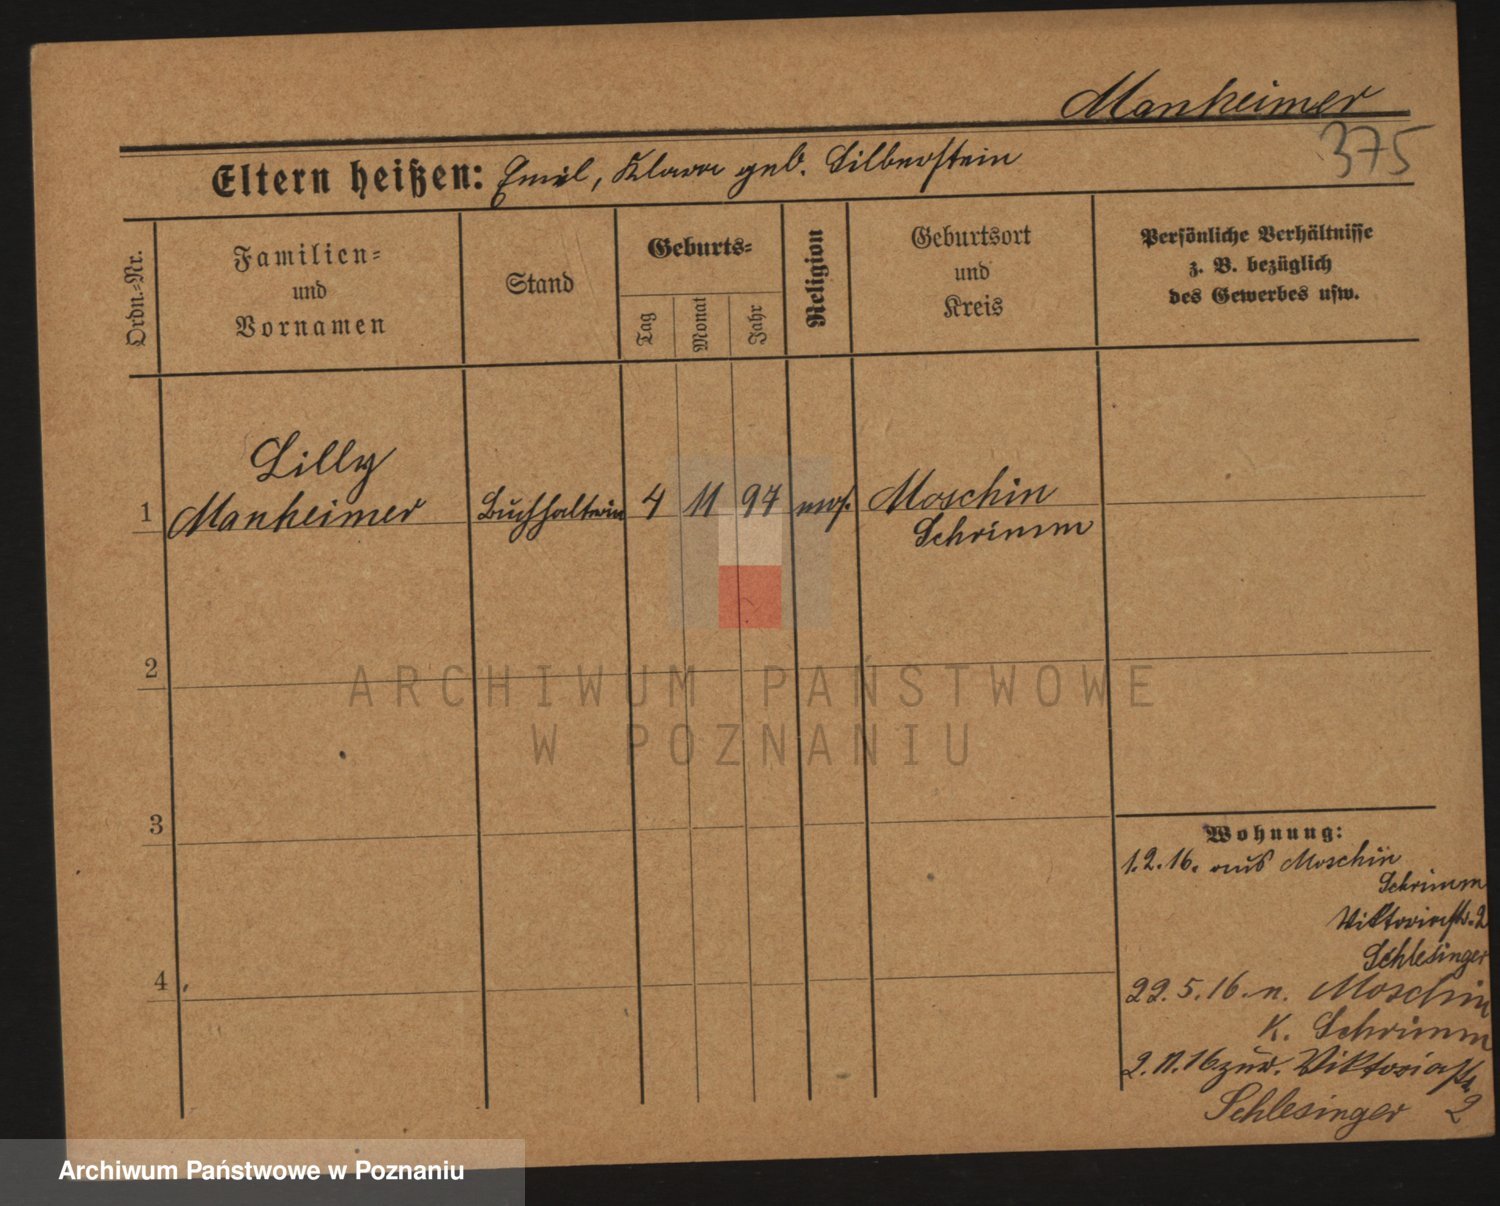 Manheimer
375
Eltern heißen: Emil, Klara geb. Silberstein
Ordn.=Nr.
Familien=
und
Vornamen
Stand
Geburts=
Tag
Monat
Jahr
Religion
Geburtsort
und
Kreis
Persönliche Verhältnisse
z. B. bezüglich
des Gewerbes usw.
Lilly
1 Manheimer Buchhalterin 4 11 97 mos. Moschin
Schrimm
2
ARCHIWUM PAŃSTWOWE
W POZNANIU
3
Wohnung:
1.2.16. aus Moschin
Schrimm
Viktoriastr. 2
Schlesinger
4
22.5.16. n. Moschin
K. Schrimm
2.11.16 zur. Viktoriastr.
Schlesinger 2
Archiwum Państwowe w Poznaniu